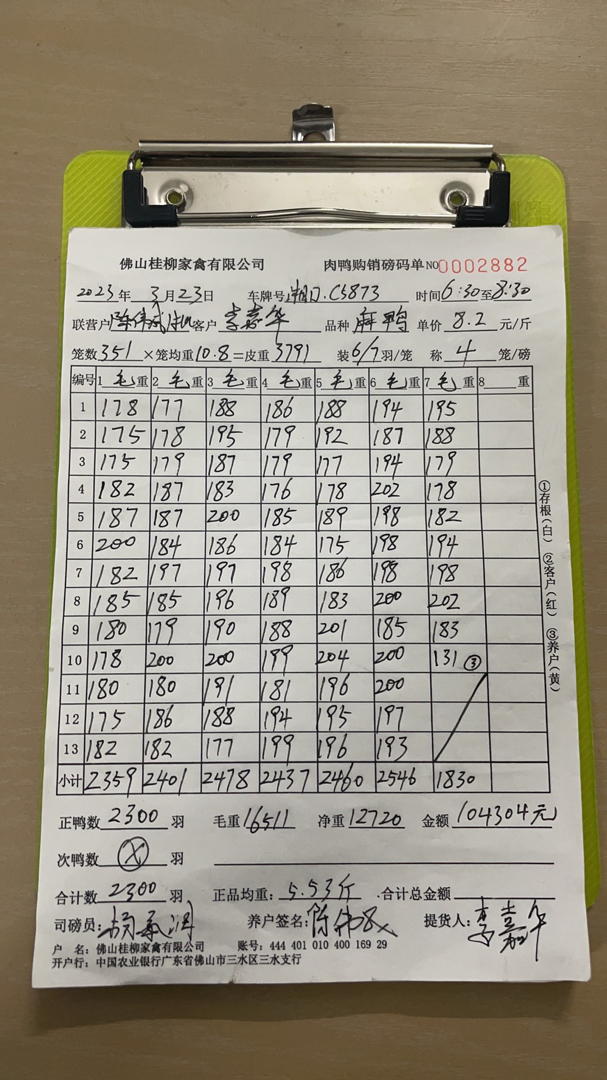 佛山桂柳家禽有限公司 肉鸭购销磅码单 NO 0002882
2023年 3月23日 车牌号: 湘D.C5873 时间6:30至8:30
联营户 陈伟斌 客户 李嘉华 品种 麻鸭 单价 8.2 元/斤
笼数 351 ×笼均重 10.8 =皮重 3791 装 6/7 羽/笼 称 4 笼/磅
编号 1 毛 重 2 毛 重 3 毛 重 4 毛 重 5 毛 重 6 毛 重 7 毛 重 8 重
1 178 177 188 186 188 194 195
2 175 178 195 179 192 187 188
3 175 179 187 179 177 194 179
4 182 187 183 176 178 202 178
5 187 187 200 185 189 198 182
6 200 184 186 184 175 198 194
7 182 197 197 198 186 198 198
8 185 185 196 189 183 200 202
9 180 179 190 188 201 185 183
10 178 200 200 199 204 200 131 ③
11 180 180 191 181 196 200
12 175 186 188 194 195 197
13 182 182 177 199 196 193
小计 2359 2401 2478 2437 2460 2546 1830
①存根(白) ②客户(红) ③养户(黄)
正鸭数 2300 羽 毛重 16511 净重 12720 金额 104304元
次鸭数 羽
合计数 2300 羽 正品均重: 5.53斤 .合计总金额
司磅员: 养户签名: 陈伟 提货人: 李嘉华
户 名: 佛山桂柳家禽有限公司 账号: 444 401 010 400 169 29
开户行: 中国农业银行广东省佛山市三水区三水支行